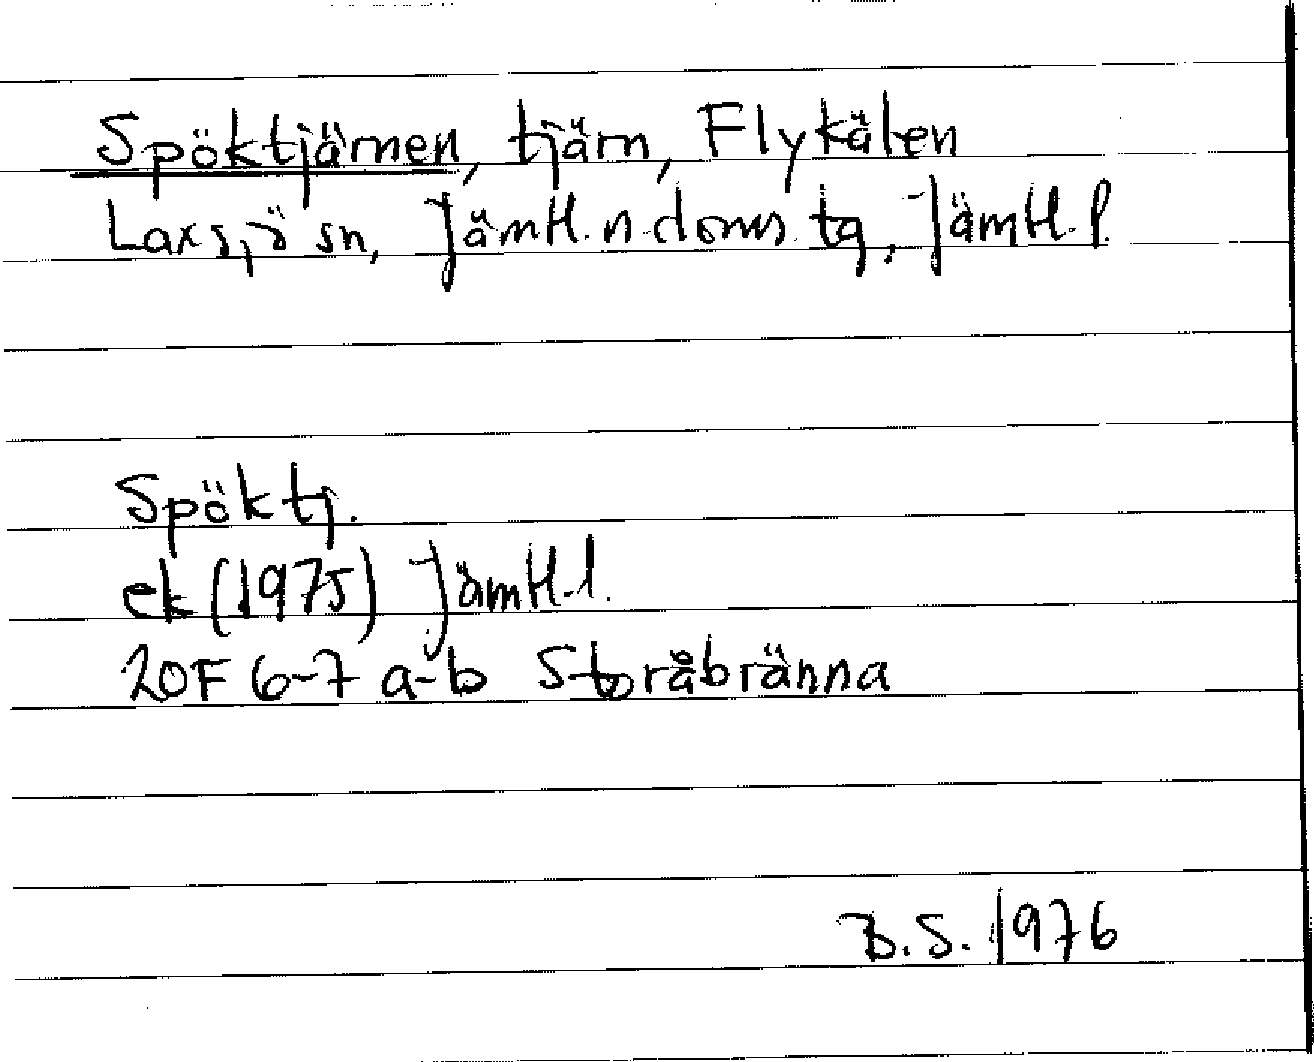 Spöktjärnen, tjärn, Flykälen
Laxsjö sn, Jämtl. n. doms. tg, Jämtl. l.
Spöktj.
ek (1975) Jämtl. l.
20F 6-7 a-b Storåbränna
B.S. 1976